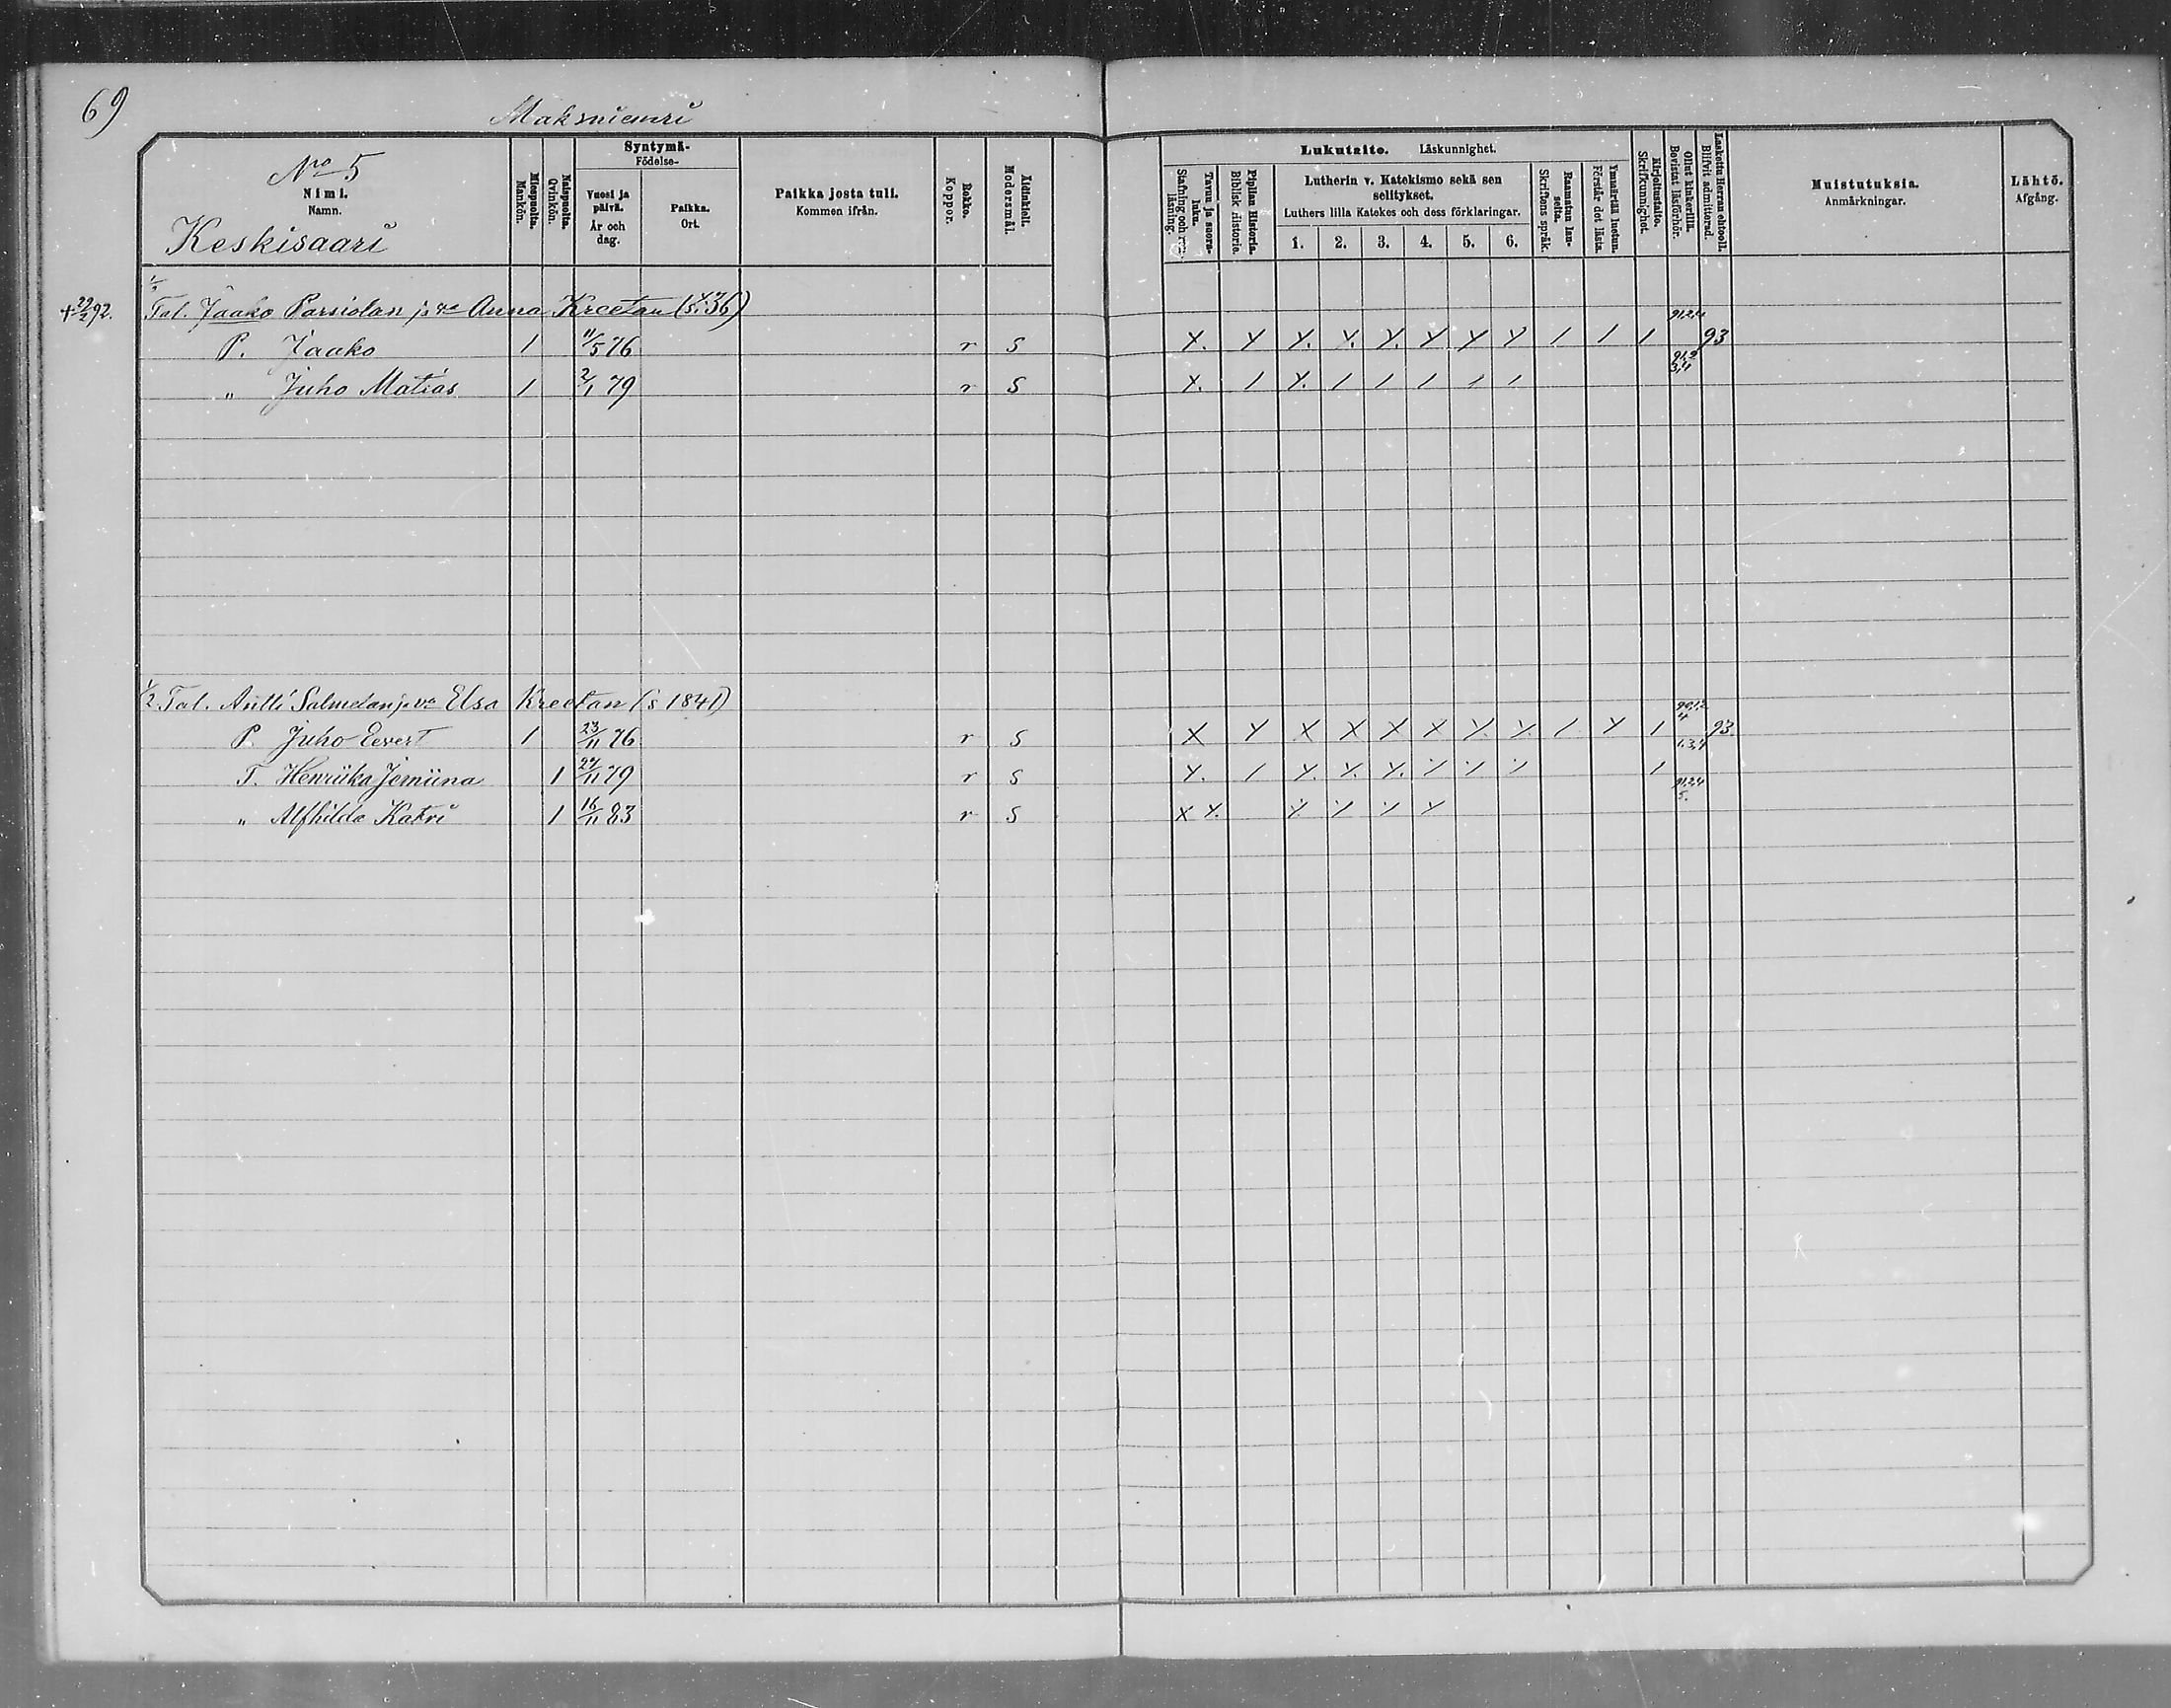 69
Maksniemi
No 5
Nimi.
Namn.
Keskisaari
Miespuolia.
Mankön.
Naispuolia.
Qvinkön.
Syntymä-
Födelse-
Vuosi ja
päivä.
År och
dag.
Paikka.
Ort.
Paikka josta tuli.
Kommen ifrån.
Rokko.
Koppor.
Äidinkieli.
Modersmål.
Lukutaito. Läskunnighet.
Tavuu ja suora-
luku.
Stafning och ren-
läsning.
Piplian Historia.
Biblisk Historie.
Lutherin v. Katekismo sekä sen
selitykset.
Luthers lilla Katekes och dess förklaringar.
1. 2. 3. 4. 5. 6.
Raamatun lau-
seita.
Skriftens språk.
Ymmärtää luetun.
Förstår det lästa.
Kirjoitustaito.
Skrifkunnighet.
Ollut kinkerillä.
Bevistat läsförhör.
Laskettu Herran ehtooll.
Blifvit admitterad.
Muistutuksia.
Anmärkningar.
Lähtö.
Afgång.
+ 29/2 92. Tal. Jaako Parsiolan ja va Anna Kreetan (s. 36)
P. Jaako 1 11/5 76 r S X. Y Y. Y. Y. Y Y Y / / 1 93
„ Juho Matias 1 2/1 79 r S Y. / Y. / / / / /
1/2 Tal. Antti Salmelan ja va Elsa Kreetan (s 1841)
P. Juho Eevert 1 23/11 76 r S X Y X X X X Y. Y. / Y 1 93
T. Henriika Jemiina 1 24/11 79 r S Y. / Y. Y. Y. Y Y Y 1
„ Alfhilda Katri 1 16/11 83 r S X Y. Y Y Y Y